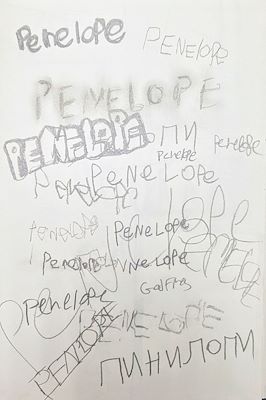 Penelope
PENELOPE
PENELOPE
PENELOPE.
ПИ
penelope
Penelope
PENELOPE
Penelope
Penelope
Penelope
Penelope
nelope
Penelope
PENELOPE
PENELOPE
ПИНИЛОПИ